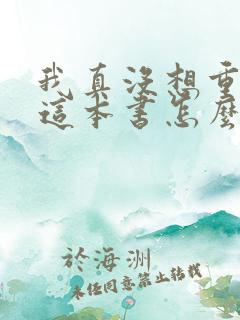 我真沒想重
這本書怎麼
於海洲
未经同意禁止转载